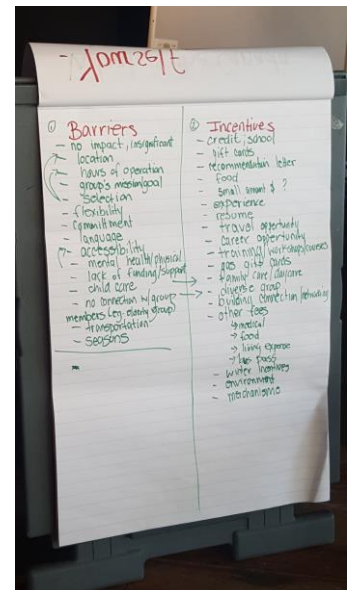 - Yourself
① Barriers
- no impact, insignificant
- location
- hours of operation
- group's mission/goal
- selection
- flexibility
- commitment
- language
- accessibility
- mental health/physical
- lack of funding/support
- child care
- no connection w/ group
members (eg. elderly group)
- transportation
- seasons
② Incentives
- credit, school
- gift cards
- recommendation letter
- food
- small amount $ ?
- experience
- resume
- travel opportunity
- career opportunity
- training/workshops/courses
- gas gift cards
- family care/daycare
- diverse group
- building connection/networking
- other fees
→ medical
→ food
→ living expense
→ bus pass
- winter incentives
- environment
- merchandise